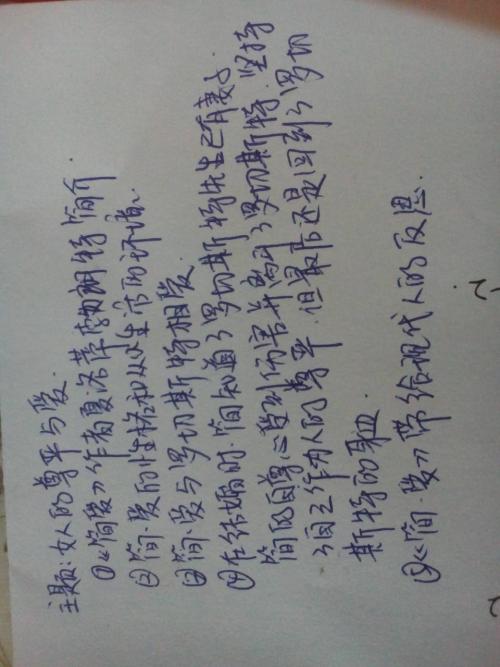 主题:女人的尊严与爱.
①《简爱》作者夏洛蒂勃朗特简介
②简·爱的性格和从小生活的环境.
③简·爱与罗切斯特相爱.
④在结婚时.简知道了罗切斯特先生已有妻子
简的自尊心受到伤害并离开了罗切斯特.坚持
了自己作为人的尊严.但最后还是回到了罗切
斯特的身边
⑤《简·爱》带给现代人的反思.